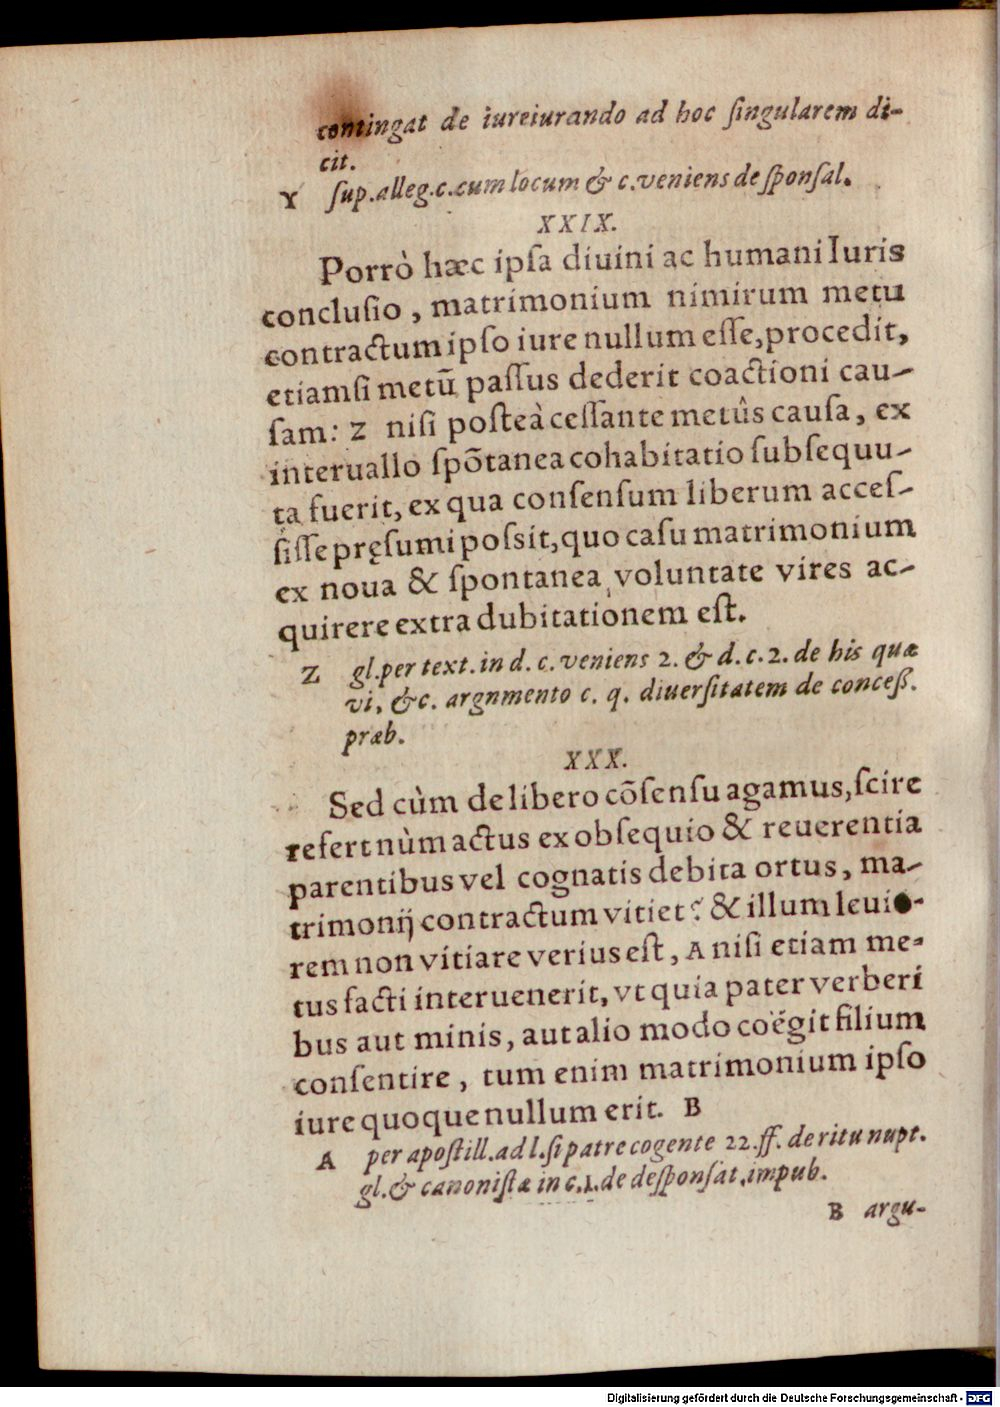 contingat de iureiurando ad hoc ſingularem di-
cit.
Y ſup.alleg.c.cum locum & c.veniens de ſponſal.
XXIX.
Porrò hæc ipſa diuini ac humani Iuris
concluſio, matrimonium nimirum metu
contractum ipſo iure nullum eſſe, procedit,
etiamsi metū paſſus dederit coactioni cau-
ſam: Z niſi poſteà ceſſante metûs cauſa, ex
interuallo ſpōtanea cohabitatio ſubſequu-
ta fuerit, ex qua conſenſum liberum acceſ-
ſiſſe pręſumi poſsit, quo caſu matrimonium
ex noua & ſpontanea voluntate vires ac-
quirere extra dubitationem eſt.
Z gl.per text.in d. c.veniens 2. & d.c.2. de his quæ
vi, &c. argnmento c. q. diuerſitatem de conceſſ.
præb.
XXX.
Sed cùm de libero cōſenſu agamus, ſcire
refert nùm actus ex obſequio & reuerentia
parentibus vel cognatis debita ortus, ma-
trimonij contractum vitiet? & illum leuio-
rem non vitiare verius eſt, A niſi etiam me-
tus facti interuenerit, vt quia pater verberi
bus aut minis, aut alio modo coëgit filium
conſentire, tum enim matrimonium ipſo
iure quoque nullum erit. B
A per apoſtill.ad l.ſi patre cogente 22.ff. de ritu nupt.
gl.& canoniſtæ in c.1.de deſponſat.impub.
B argu-
Digitalisierung gefördert durch die Deutsche Forschungsgemeinschaft - DFG